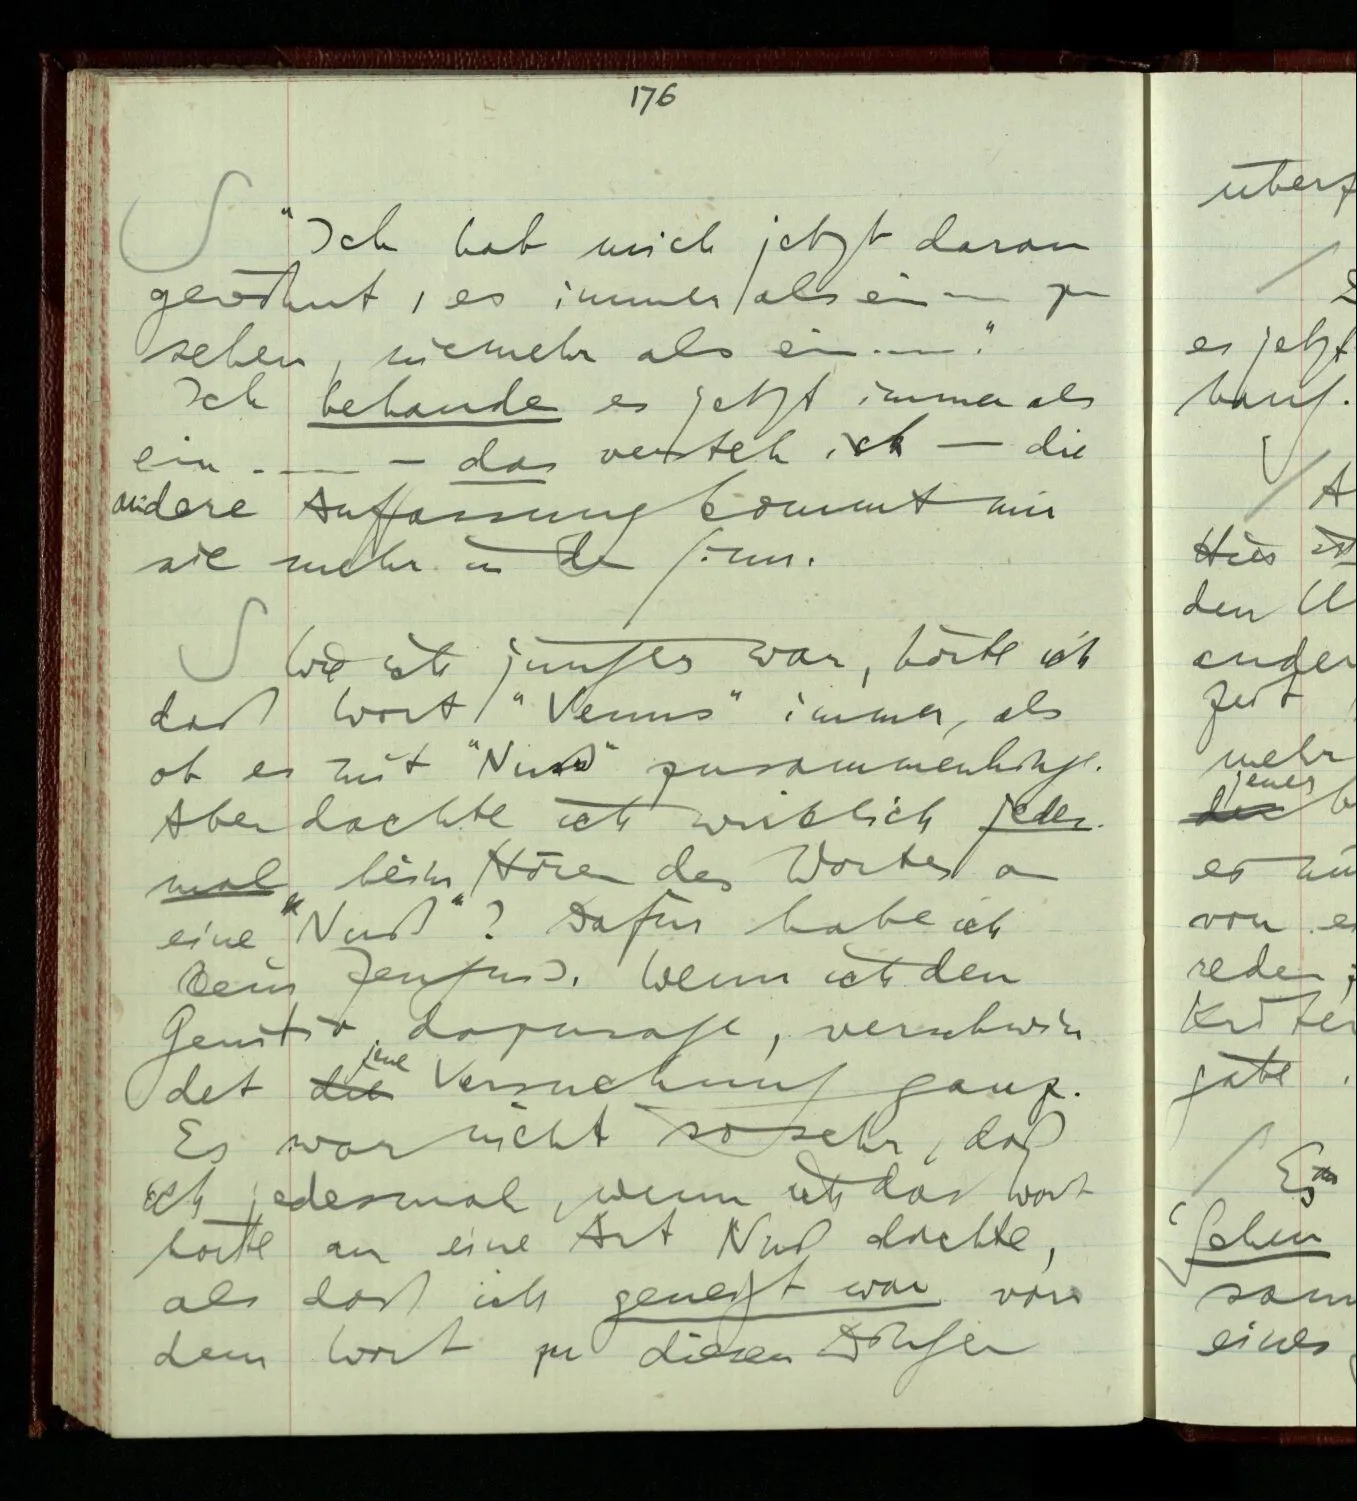 176
"Ich hab mich jetzt daran
gewöhnt, es immer als ein — zu
sehen, niemehr als ein.—."
Ich behande es jetzt immer als
ein . — — das versteh ich — die
andere Auffassung kommt mir
nie mehr in den Sinn.
Wie ich jünger war, hörte ich
das Wort "Venus" immer, als
ob es mit "Nuß" zusammenhinge.
Aber dachte ich wirklich jedes-
mal, beim Hören des Wortes an
eine "Nuß"? Dafür habe ich
kein Zeugnis. Wenn ich den
Genitiv dazusage, verschwin
det die jene Versuchung ganz.
Es war nicht so sehr, daß
ich jedesmal, wenn ich das Wort
hörte an eine Art Nuß dachte,
als daß ich geneigt war von
dem Wort zu diesen Dingen
es jetzt
den
mehr
jenes
der
es
von
reden
gäbe
Sehen
eines